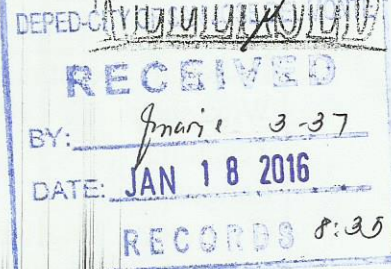 DEPED-
RECEIVED
BY: 3-37
DATE: JAN 18 2016
RECORDS 8:35